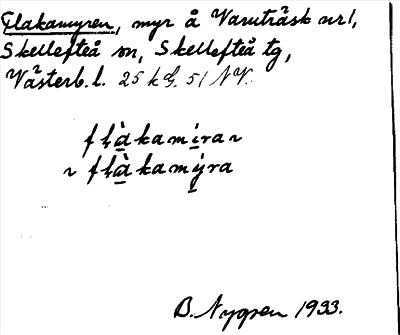 Flakamyren, myr å Varuträsk nr 1,
Skellefteå sn, Skellefteå tg,
Västerb. l. 25 k G. 51 NV.
flàkamíran
~ flàkamýra
B. Nygren 1933.